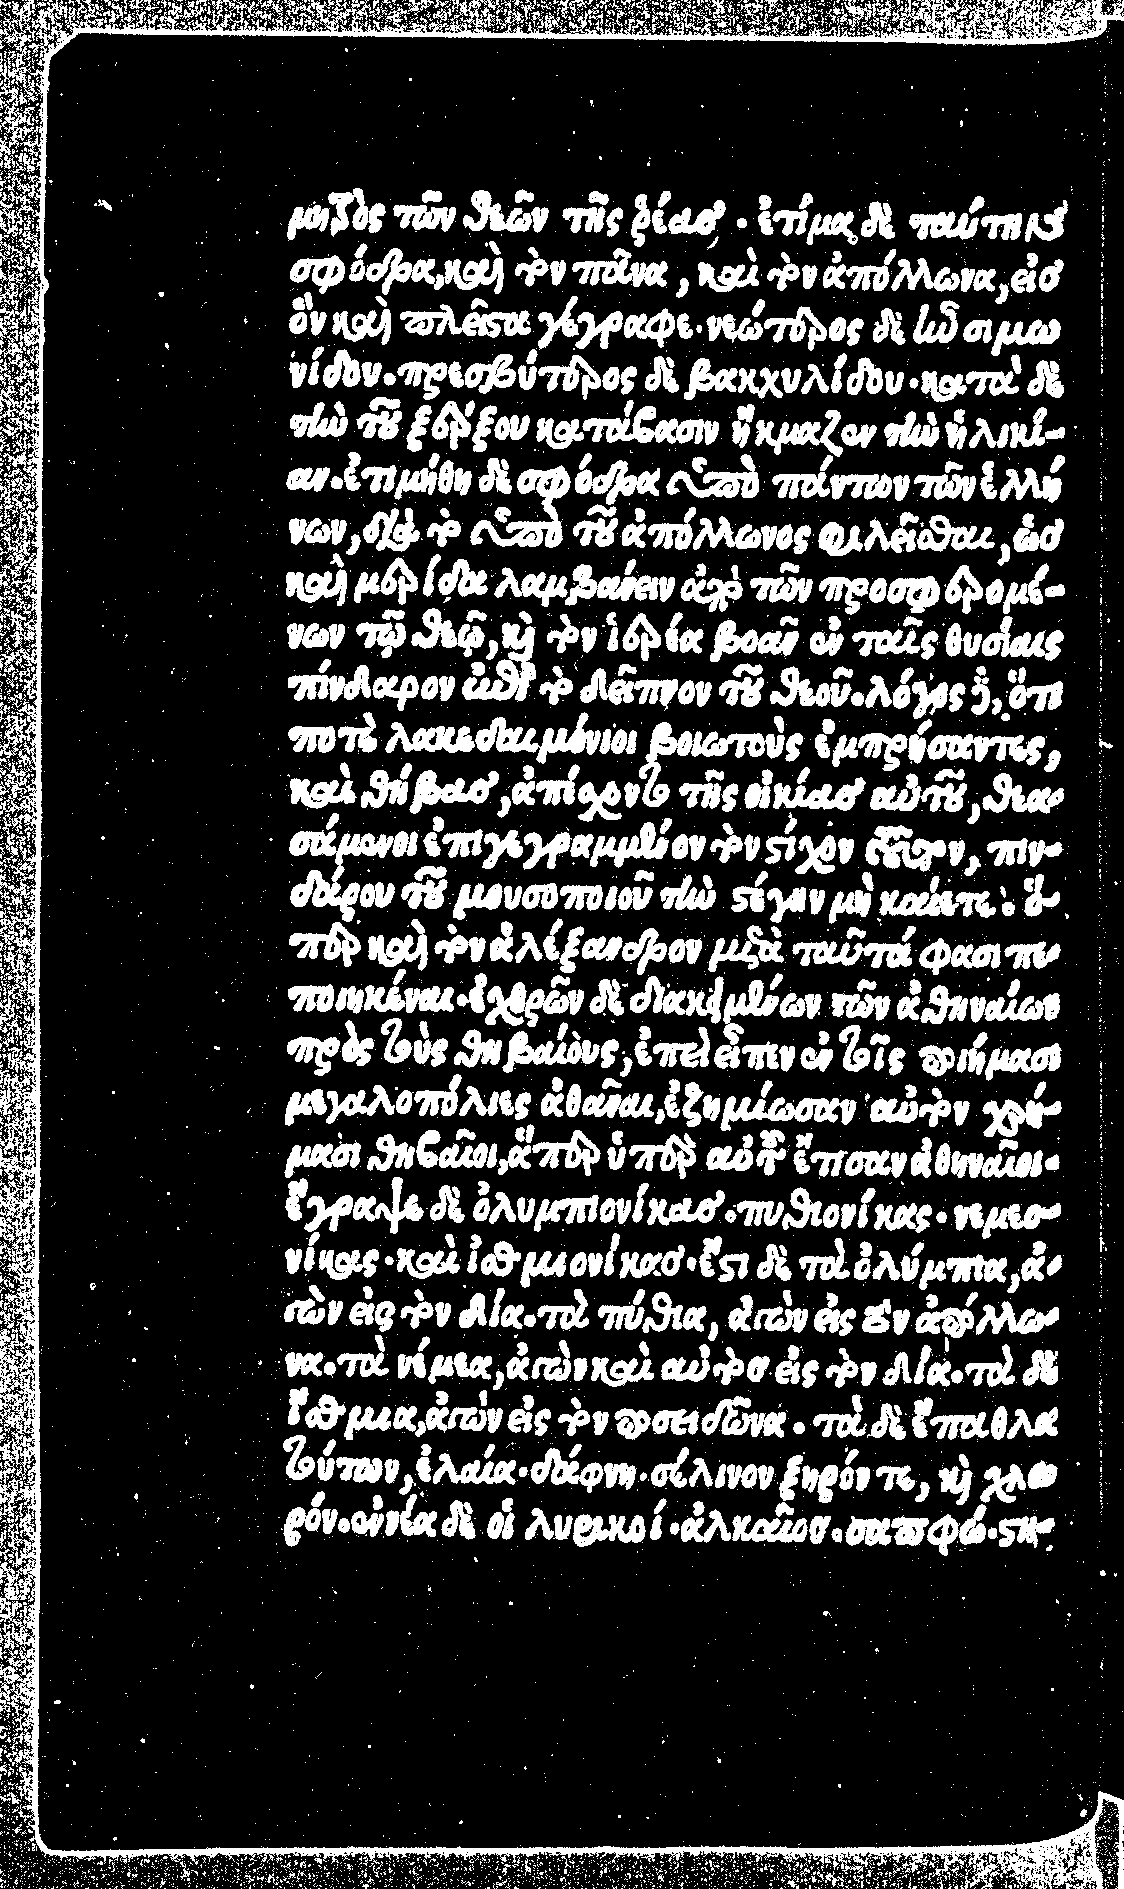 μητρὸς τῶν θεῶν τῆς ῥέας. ἐτίμα δὲ ταύτην
σφόδρα, καὶ τὸν πᾶνα, καὶ τὸν ἀπόλλωνα, εἰς
ὃν καὶ πλεῖστα γέγραφε. νεώτερος δὲ ἦν σιμω
νίδου. πρεσβύτερος δὲ βακχυλίδου. κατὰ δὲ
τὴν τοῦ ξέρξου κατάβασιν ἤκμαζεν τὴν ἡλικί-
αν. ἐτιμήθη δὲ σφόδρα ὑπὸ πάντων τῶν ἑλλή
νων, διὰ τὸ ὑπὸ τοῦ ἀπόλλωνος φιλεῖσθαι, ὡς
καὶ μερίδα λαμβάνειν ἀπὸ τῶν προσφερομέ-
νων τῷ θεῷ, καὶ τὸν ἱερέα βοᾶν ἐν ταῖς θυσίαις
πίνδαρον ἐπὶ τὸ δεῖπνον τοῦ θεοῦ. λόγος δὲ, ὅτι
ποτὲ λακεδαιμόνιοι βοιωτοὺς ἐμπρήσαντες,
καὶ θήβας, ἀπέχοντο τῆς οἰκίας αὐτοῦ, θεα-
σάμενοι ἐπιγεγραμμένον τὸν στίχον τοῦτον, πιν-
δάρου τοῦ μουσοποιοῦ τὴν στέγην μὴ καίετε. ὅ-
περ καὶ τὸν ἀλέξανδρον μετὰ ταῦτά φασι πε-
ποιηκέναι. ἐχθρῶν δὲ διακειμένων τῶν ἀθηναίων
πρὸς τοὺς θηβαίους, ἐπεὶ εἶπεν ἐν τοῖς ποιήμασι
μεγαλοπόλιες ἀθᾶναι, ἐζημίωσαν αὐτὸν χρή-
μασι θηβαῖοι, ἅπερ ὑπὲρ αὐτοῦ ἔτισαν ἀθηναῖοι.
ἔγραψε δὲ ὀλυμπιονίκας. πυθιονίκας. νεμεο-
νίκας. καὶ ἰσθμιονίκας. ἔστι δὲ τὰ ὀλύμπια, ἀ-
γὼν εἰς τὸν δία. τὰ πύθια, ἀγὼν εἰς τὸν ἀπόλλω-
να. τὰ νέμεα, ἀγὼν καὶ αὐτὸς εἰς τὸν δία. τὰ δὲ
ἴσθμια, ἀγὼν εἰς τὸν ποσειδῶνα. τὰ δὲ ἔπαθλα
τούτων, ἐλαία. δάφνη. σέλινον ξηρόν τε, καὶ χλω
ρόν. ἐννέα δὲ οἱ λυρικοί. ἀλκαῖος. σαπφώ. στη-